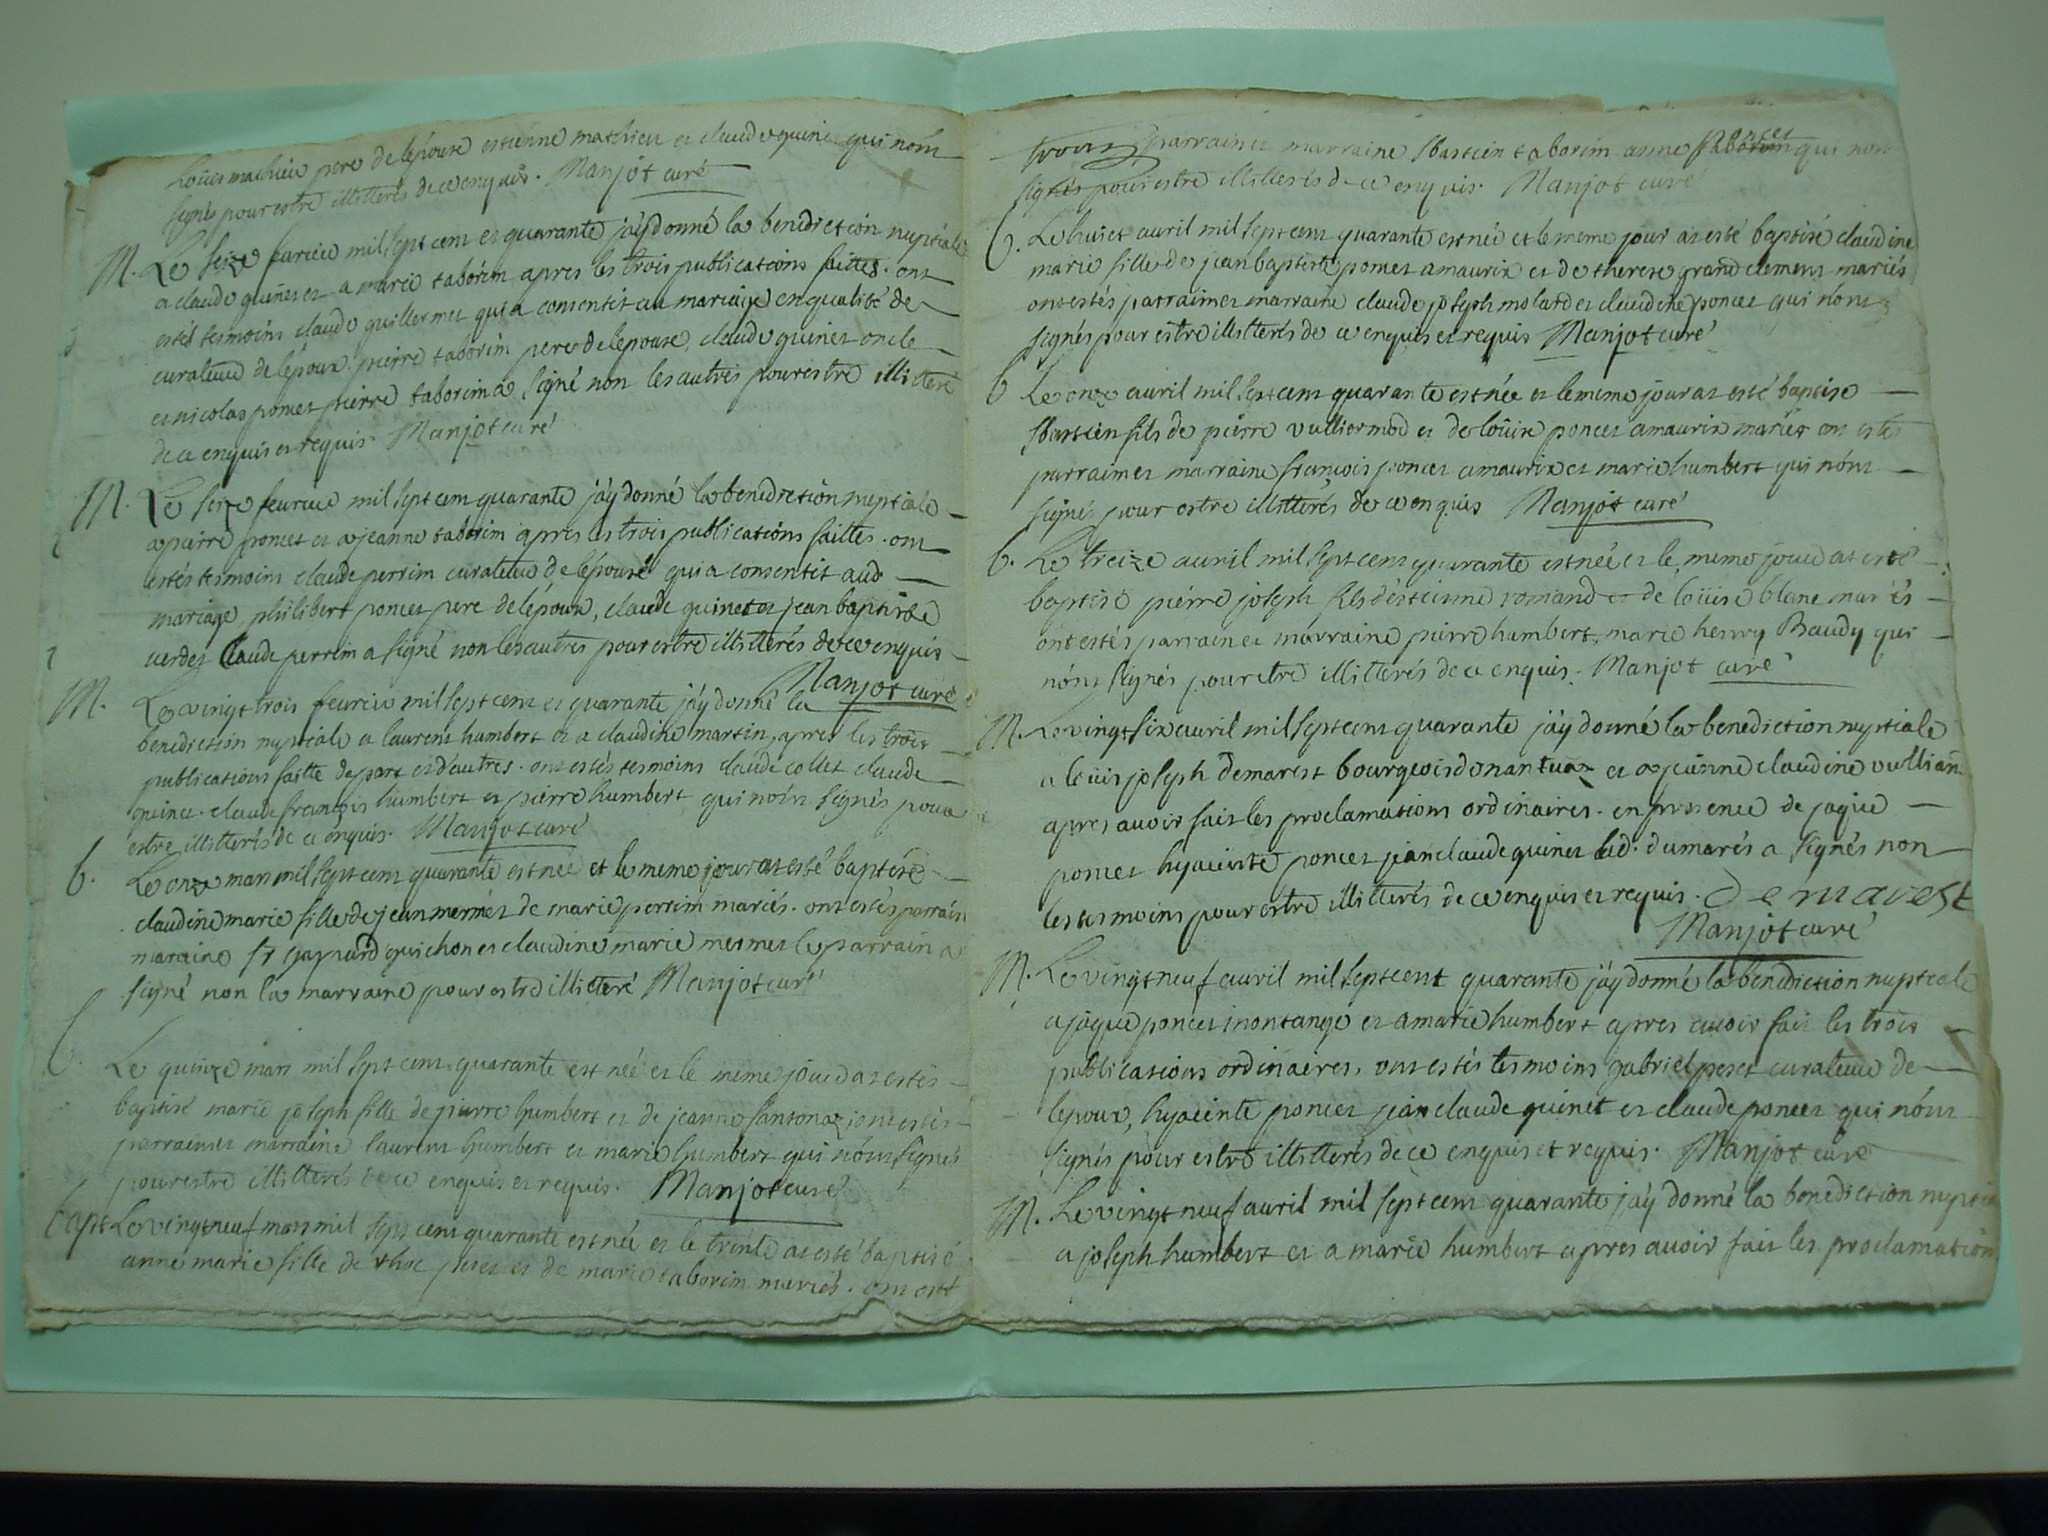 Loüis mathieu pere de lépouse estienne mathieu et claude quinet qui nont
signés pour estre illitterés de ce enquis. Manjot curé
M. Le seize fevrier mil sept cent et quarante j'aÿ donné la benediction nuptiale
a claude quinet et a marie taborin apres les trois publications faites. ont
estés tesmoins claude guillermet qui a consentit au mariage en qualité de
curateur de lépoux pierre taborin pere de lepouse, claude quinet oncle
et nicolas poncet pierre taborin a signé non les autres pour estre illitteré
de ce enquis et requis. Manjot curé
M. Le seize feuvrier mil sept cent quarante j'aÿ donné la benediction nuptiale
a pierre poncet et a jeanne taborin apres les trois publications faittes. ont
estés tesmoins claude perrin curateur de lépouse qui a consentit aud
mariage, philibert poncet pere de lépoux, claude quinet et jean baptiste
verdet Claude perrin a signé non les autres pour estre illitterés de ce enquis
Manjot curé
M. Le vingt trois feuvrier mil sept cent et quarante j'aÿ donné la
benediction nuptiale a laurent humbert et a claudine martin, apres les trois
publications faitte de part et d'autres. ont estés tesmoins claude collet claude
quinet. claude françois humbert et pierre humbert qui nont signés pour
estre illitterés de ce enquis. Manjot curé
b. Le onze mars mil sept cent quarante est née et le meme jour at esté baptisée
claudine marie fille de jean mermet de marie perrin mariés. ont estés parrain
maraine Sr gaspard guichon et claudine marie mermet le parrain a
signé non la marraine pour estre illitteré Manjot curé
b. Le quinze mars mil sept cent quarante est née et le meme jour at estés
baptisé marie joseph fille de pierre humbert et de jeanne santonaz, ont estés
parrain et marraine laurent humbert et marie humbert qui nont signés
pour estre illitterés de ce enquis et requis. Manjot curé
bapt Le vingt neuf mars mil sept cent quarante est née et le trente at esté baptisé
anne marie fille de peset et de marie taborin mariés. ont esté
parrain et marraine sbastien taborin anne poncet qui nont
signés pour estre illitterés de ce enquis. Manjot curé
b. Le huict avril mil sept cent quarante est née et le meme jour at esté baptisé claudine
marie fille de jean baptiste poncet amaurix et de therese grand clement mariés
ont estés parrain et marraine claude joseph molard et claudine poncet qui nont
signés pour estre illitterés de ce enquis et requis Manjot curé
b Le onze avril mil sept cent quarante est née et le meme jour at esté baptisé
sbastien fils de pierre vulliermod et de loüise poncet amaurix mariés ont estés
parrain et marraine françois poncet amaurix et marie humbert qui nont
signés pour estre illitterés de ce enquis Manjot curé
b. Le treize avril mil sept cent quarante est née et le meme jour at esté
baptisé pierre joseph fils d'estienne romand et de loüise blanc mariés
ont estés parrain et marraine pierre humbert, marie henry Baudy qui
nont signés pour etre illitterés de ce enquis. Manjot curé
M. Le vingt six avril mil sept cent quarante j'aÿ donné la benediction nuptiale
a loüis joseph demarest bourgeois de nantua et a jeanne claudine vullian
apres avoir fait les proclamations ordinaires. en presence de jaque
poncet hyacinte poncet jean claude quinet led. dumarés a signés non
les tesmoins pour estre illitterés de ce enquis et requis. demarest
Manjot curé
M. Le vingt neuf avril mil sept cent quarante j'aÿ donné la benediction nuptiale
a jaque poncet montange et a marie humbert apres avoir fait les trois
publications ordinaires, ont estés tesmoins gabriel peset curateur de
lepoux, hyacinte poncet jean claude quinet et claude poncet qui nont
signés pour estre illitterés de ce enquis et requis. Manjot curé
M. Le vingt neuf avril mil sept cent quarante j'aÿ donné la benediction nuptia
a joseph humbert et a marie humbert apres avoir fait les proclamation